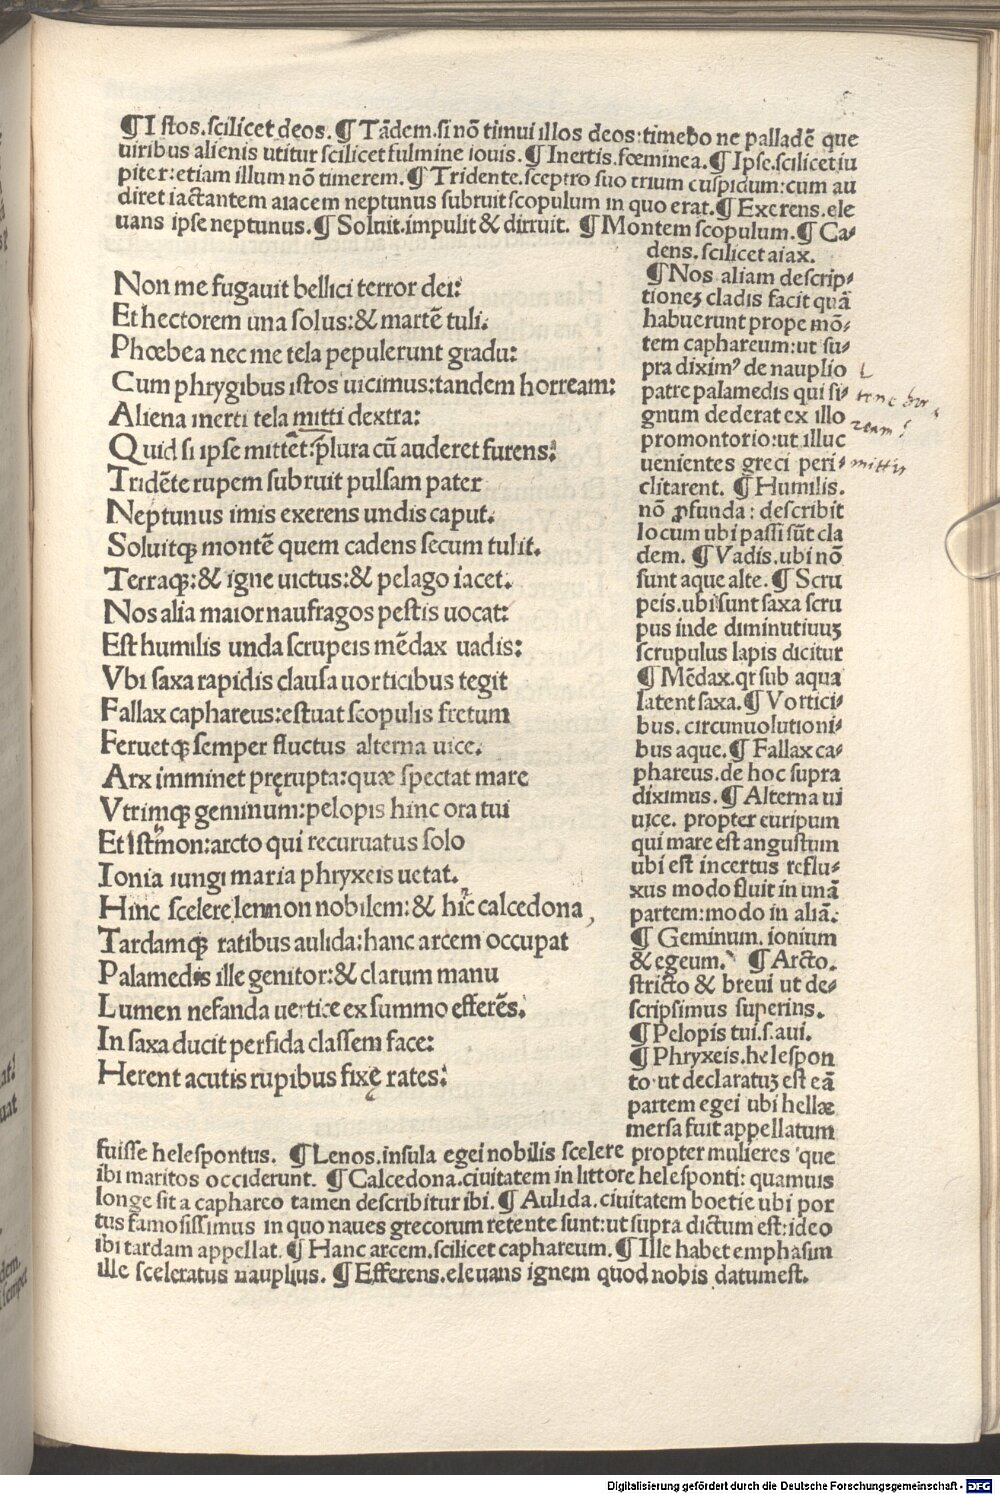 ¶Istos.scilicet deos.¶Tãdem.si nõ timui illos deos:timebo ne palladẽ que
uiribus alienis utitur scilicet fulmine iouis.¶Inertis.fœminea.¶Ipse.scilicet iu
piter:etiam illum nõ timerem.¶Tridente.sceptro suo trium cuspidum:cum au
diret iactantem aiacem neptunus subruit scopulum in quo erat.¶Exerens.ele
uans ipse neptunus.¶Soluit.impulit & dirruit. ¶Montem scopulum.¶Ca-
dens.scilicet aiax.
Non me fugauit bellici terror dei:
Et hectorem una solus:& martẽ tuli.
Phœbea nec me tela pepulerunt gradu:
Cum phrygibus istos uicimus:tandem horream:
Aliena inerti tela mitti dextra:
Quid si ipse mittet:plura cũ auderet furens:
Tridẽte rupem subruit pulsam pater
Neptunus imis exerens undis caput.
Soluitqȝ montẽ quem cadens secum tulit.
Terraqȝ:& igne uictus:& pelago iacet.
Nos alia maior naufragos pestis uocat:
Est humilis unda scrupeis mẽdax uadis:
Vbi saxa rapidis clausa uorticibus tegit
Fallax caphareus:estuat scopulis fretum
Feruetqȝ semper fluctus alterna uice.
Arx imminet pręrupta:quæ spectat mare
Vtrimqȝ geminum:pelopis hinc ora tui
Et Istmon:arcto qui recuruatus solo
Ionia iungi maria phryxeis uetat.
Hinc scelere lennon nobilem:& hic calcedona,
Tardamqȝ ratibus aulida:hanc arcem occupat
Palamedis ille genitor:& clarum manu
Lumen nefanda uertice ex summo efferẽs.
In saxa ducit perfida classem face:
Herent acutis rupibus fixę rates:
¶Nos aliam descrip-
tioneȝ cladis facit quã
habuerunt prope mõ-
tem caphareum:ut su-
pra diximꝰ de nauplio
patre palamedis qui si-
gnum dederat ex illo
promontorio:ut illuc
uenientes greci peri-
clitarent. ¶Humilis.
nõ ꝓfunda: describit
locum ubi passi sũt cla
dem. ¶Vadis.ubi nõ
sunt aque alte.¶Scru
peis.ubi sunt saxa scru
pus inde diminutiuuȝ
scrupulus lapis dicitur
¶Mẽdax.qr sub aqua
latent saxa.¶Vortici-
bus. circunuolutioni-
bus aque.¶Fallax ca-
phareus.de hoc supra
diximus.¶Alterna ui
uice. propter euripum
qui mare est angustum
ubi est incertus reflu-
xus modo fluit in unã
partem:modo in aliã.
¶Geminum. ionium
& egeum. ¶Arcto.
stricto & breui ut de-
scripsimus superius.
¶Pelopis tui.s.aui.
¶Phryxeis.helespon
to ut declaratuȝ est eã
partem egei ubi hellæ
mersa fuit appellatum
fuisse helespontus. ¶Lenos.insula egei nobilis scelere propter mulieres que
ibi maritos occiderunt. ¶Calcedona.ciuitatem in littore helesponti: quamuis
longe sit a caphareo tamen describitur ibi.¶Aulida.ciuitatem boetie ubi por
tus famosissimus in quo naues grecorum retente sunt:ut supra dictum est:ideo
ibi tardam appellat.¶Hanc arcem.scilicet caphareum.¶Ille habet emphasim
ille sceleratus nauplius. ¶Efferens.eleuans ignem quod nobis datum est.
mittis
Digitalisierung gefördert durch die Deutsche Forschungsgemeinschaft - DFG